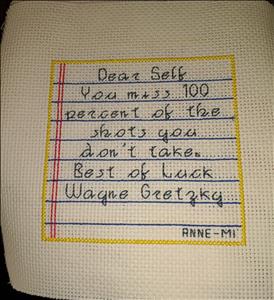 Dear Self
You miss 100
percent of the
shots you
don't take.
Best of Luck
Wayne Gretzky
ANNE-MI